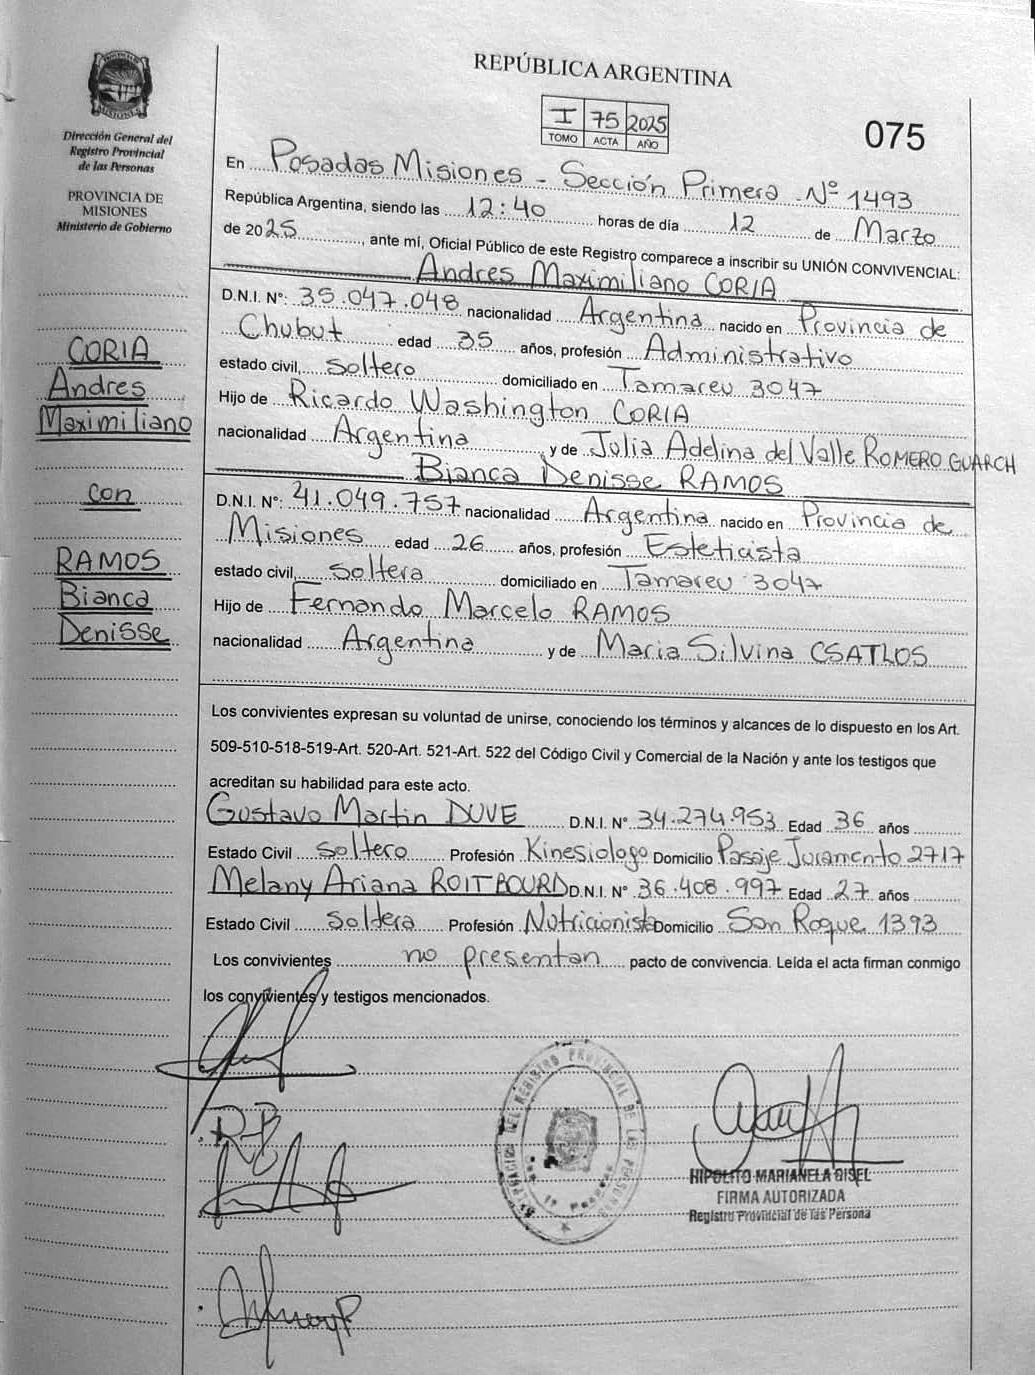 REPÚBLICA ARGENTINA
PROVINCIA DE
MISIONES
Dirección General del
Registro Provincial
de las Personas
PROVINCIA DE
MISIONES
Ministerio de Gobierno
I 75 2025
TOMO ACTA AÑO
075
En Posadas Misiones - Sección Primera Nº 1493
República Argentina, siendo las 12:40 horas de día 12 de Marzo
de 2025, ante mí, Oficial Público de este Registro comparece a inscribir su UNIÓN CONVIVENCIAL:
Andres Maximiliano CORIA
D.N.I. N°: 35.047.048 nacionalidad Argentina nacido en Provincia de
Chubut edad 35 años, profesión Administrativo
estado civil, Soltero domiciliado en Tamareu 3047
Hijo de Ricardo Washington CORIA
nacionalidad Argentina y de Julia Adelina del Valle ROMERO GUARCH
Bianca Denisse RAMOS
D.N.I. N°: 41.049.757 nacionalidad Argentina nacido en Provincia de
Misiones edad 26 años, profesión Esteticista
estado civil, Soltera domiciliado en Tamareu 3047
Hijo de Fernando Marcelo RAMOS
nacionalidad Argentina y de Maria Silvina CSATLOS
CORIA
Andres
Maximiliano
con
RAMOS
Bianca
Denisse
Los convivientes expresan su voluntad de unirse, conociendo los términos y alcances de lo dispuesto en los Art.
509-510-518-519-Art. 520-Art. 521-Art. 522 del Código Civil y Comercial de la Nación y ante los testigos que
acreditan su habilidad para este acto.
Gustavo Martin DUVE D.N.I. N° 34.274.953 Edad 36 años
Estado Civil Soltero Profesión Kinesiologo Domicilio Pasaje Juramento 2717
Melany Ariana ROITBOURD D.N.I. N° 36.408.997 Edad 27 años
Estado Civil Soltera Profesión Nutricionista Domicilio San Roque 1393
Los convivientes no presentan pacto de convivencia. Leída el acta firman conmigo
los convivientes y testigos mencionados.
R-B
DEL REGISTRO PROVINCIAL DE LAS PERSONAS
HIPOLITO MARIANELA GISEL
FIRMA AUTORIZADA
Registro Provincial de las Persona